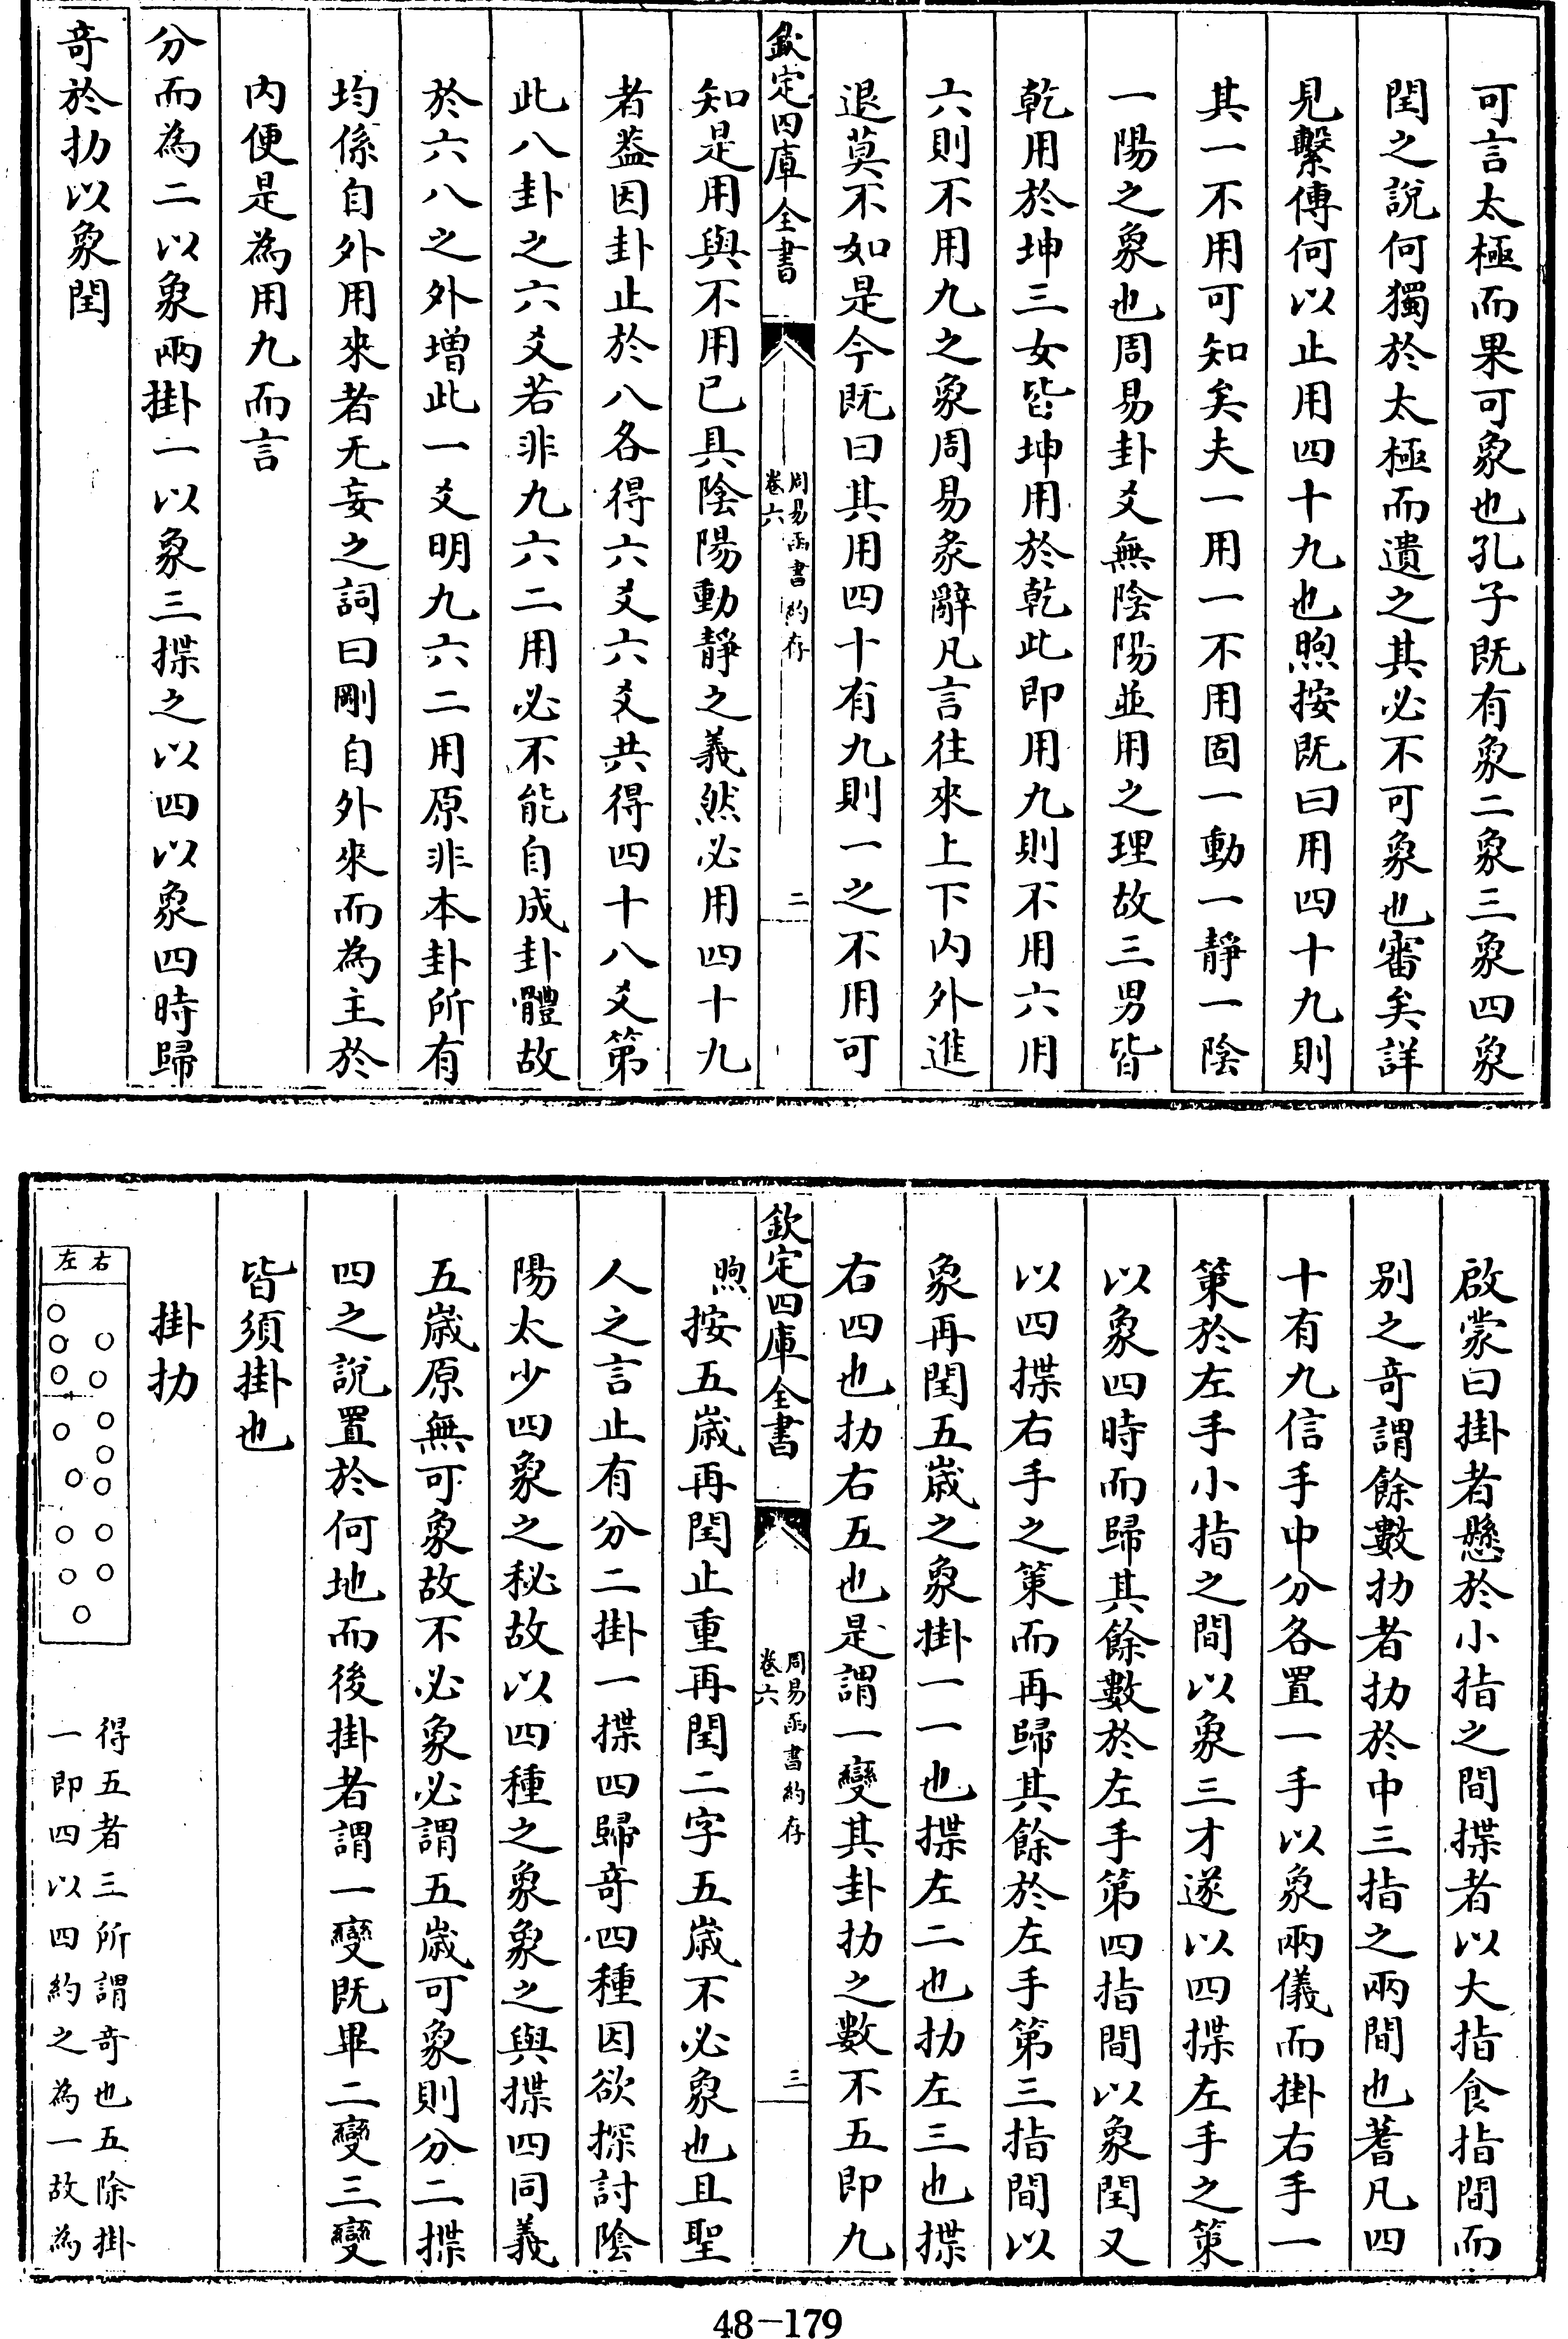 可言太極而果可象也孔子既有象二象三象四象
閏之說何獨於太極而遺之其必不可象也審矣詳
見繫傳何以止用四十九也煦按既曰用四十九則
其一不用可知矣夫一用一不用固一動一靜一陰
一陽之象也周易卦爻無陰陽並用之理故三男皆
乾用於坤三女皆坤用於乾此即用九則不用六用
六則不用九之象周易彖辭凡言往來上下内外進
退莫不如是今既曰其用四十有九則一之不用可
欽定四庫全書
周易函書約存
卷六
二
知是用與不用已具陰陽動靜之義然必用四十九
者葢因卦止於八各得六爻六爻共得四十八爻第
此八卦之六爻若非九六二用必不能自成卦體故
於六八之外增此一爻明九六二用原非本卦所有
均係自外用來者无妄之詞曰剛自外來而為主於
内便是為用九而言
分而為二以象兩掛一以象三揲之以四以象四時歸
奇於扐以象閏
啟蒙曰掛者懸於小指之間揲者以大指食指間而
别之奇謂餘數扐者扐於中三指之兩間也蓍凡四
十有九信手中分各置一手以象兩儀而掛右手一
策於左手小指之間以象三才遂以四揲左手之策
以象四時而歸其餘數於左手第四指間以象閏又
以四揲右手之策而再歸其餘於左手第三指間以
象再閏五歲之象掛一一也揲左二也扐左三也揲
右四也扐右五也是謂一變其卦扐之數不五即九
欽定四庫全書
周易函書約存
卷六
三
煦按五歲再閏止重再閏二字五歲不必象也且聖
人之言止有分二掛一揲四歸奇四種因欲探討陰
陽太少四象之秘故以四種之象象之與揲四同義
五歲原無可象故不必象必謂五歲可象則分二揲
四之說置於何地而後掛者謂一變既畢二變三變
皆須掛也
掛扐
右
左
得五者三所謂奇也五除掛
一即四以四約之為一故為
48-179